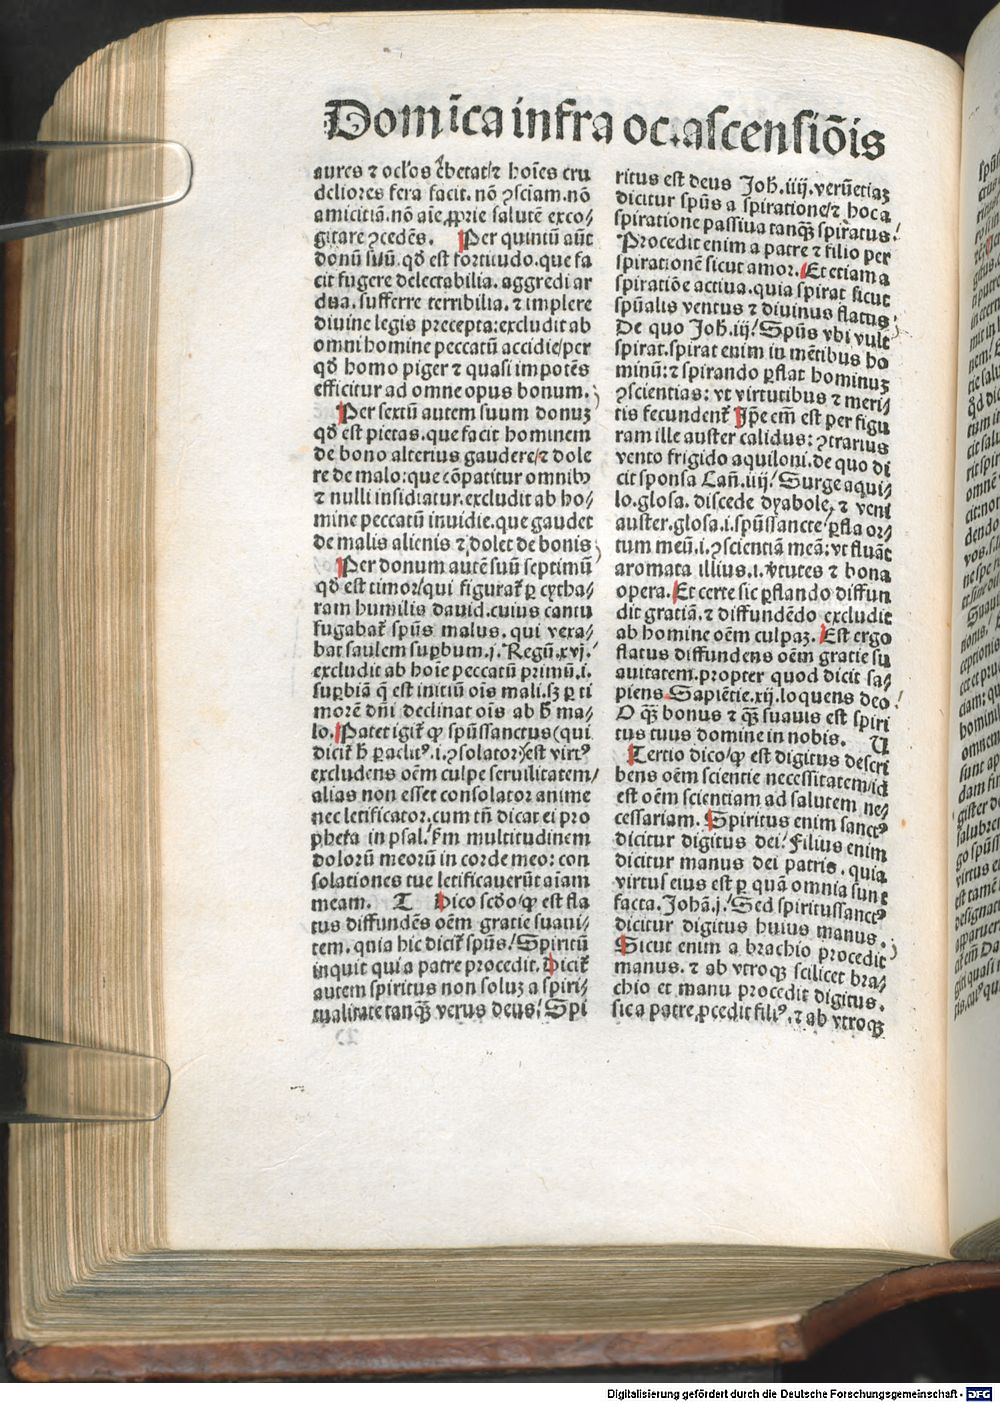 Domīca infra oc. ascensiōis
aures ⁊ oclos ebetat/⁊ hoīes cru
deliores fera facit. nō ꝯsciam. nō
amicitiā. nō aīe ꝓprie salutē exco⸗
gitare ꝯcedēs. Per quintū aūt
donū suū. qđ est fortitudo. que fa
cit fugere delectabilia. aggredi ar
dua. sufferre terribilia. ⁊ implere
diuine legis precepta: excludit ab
omni homine peccatū accidie/per
qđ homo piger ⁊ quasi impotēs
efficitur ad omne opus bonum.
Per sextū autem suum donuꝫ
qđ est pietas. que facit hominem
de bono alterius gaudere/⁊ dole
re de malo: que cōpatitur omnibꝰ
⁊ nulli insidiatur. excludit ab ho⸗
mine peccatū inuidie. que gaudet
de malis alienis ⁊ dolet de bonis
Per donum autē suū septimū
qđ est timor/qui figurat̄ ꝑ cytha⸗
ram humilis dauid. cuius cantu
fugabat̄ spūs malus. qui vexa⸗
bat saulem suꝑbum. j. Regū. xvj.
excludit ab hoīe peccatū primū. i.
suꝑbiā q̄ est initiū oīs mali. sꝫ ꝑ ti
morē dn̄i declinat oīs ab h̄ ma⸗
lo. Patet igit̄ ꝙ spūssanctus (qui
dicit̄ h̄ ꝑaclitꝰ. i. ꝯsolator) est virtꝰ
excludens oēm culpe seruilitatem/
alias non esset consolator anime
nec letificator. cum tn̄ dicat ei pro
pheta in psal. Fm multitudinem
dolorū meorū in corde meo: con
solationes tue letificauerūt aīam
meam. T Dico scđo/ꝙ est fla
tus diffundēs oēm gratie suaui⸗
tem. quia hic dicit̄ spūs/Spiritū
inquit qui a patre procedit. Dicit̄
autem spiritus non soluꝫ a spiri⸗
tualitate tanqꝫ verus deus/Spi
ritus est deus Joh. iiij. verūetiaꝫ
dicitur spūs a spiratione/⁊ hoc a
spiratione passiua tanqꝫ spiratus.
Procedit enim a patre ⁊ filio per
spirationē sicut amor. Et etiam a
spiratiōe actiua. quia spirat sicut
spūalis ventus ⁊ diuinus flatus
De quo Joh. iij/Spūs vbi vult
spirat. spirat enim in mētibus ho
minū: ⁊ spirando ꝑflat hominuꝫ
ꝯscientias: vt virtutibus ⁊ meri⸗
tis fecundent̄ Ip̄e em̄ est per figu
ram ille auster calidus: ꝯtrarius
vento frigido aquiloni. de quo di
cit sponsa Can̄. iiij/Surge aqui⸗
lo. glosa. discede dyabole, ⁊ veni
auster. glosa. i. spūssancte/ꝑfla or⸗
tum meū. i. ꝯscientiā meā: vt fluāt
aromata illius. i. v̓tutes ⁊ bona
opera. Et certe sic ꝑflando diffun
dit gratiā. ⁊ diffundēdo excludit
ab homine oēm culpaꝫ. Est ergo
flatus diffundens oēm gratie su
auitatem. propter quod dicit sa⸗
piens Sapiētie. xij. loquens deo
O qꝫ bonus ⁊ qꝫ suauis est spiri
tus tuus domine in nobis. U
Tertio dico/ꝙ est digitus descri
bens oēm scientie necessitatem/id
est oēm scientiam ad salutem ne⸗
cessariam. Spiritus enim sanctꝰ
dicitur digitus dei. Filius enim
dicitur manus dei patris. quia
virtus eius est ꝑ quā omnia sunt
facta. Johā. j. Sed spiritussanctꝰ
dicitur digitus huius manus.
Sicut enim a brachio procedit
manus. ⁊ ab vtroqꝫ scilicet bra⸗
chio et manu procedit digitus.
sic a patre ꝓcedit filiꝰ. ⁊ ab vtroqꝫ
Digitalisierung gefördert durch die Deutsche Forschungsgemeinschaft - DFG